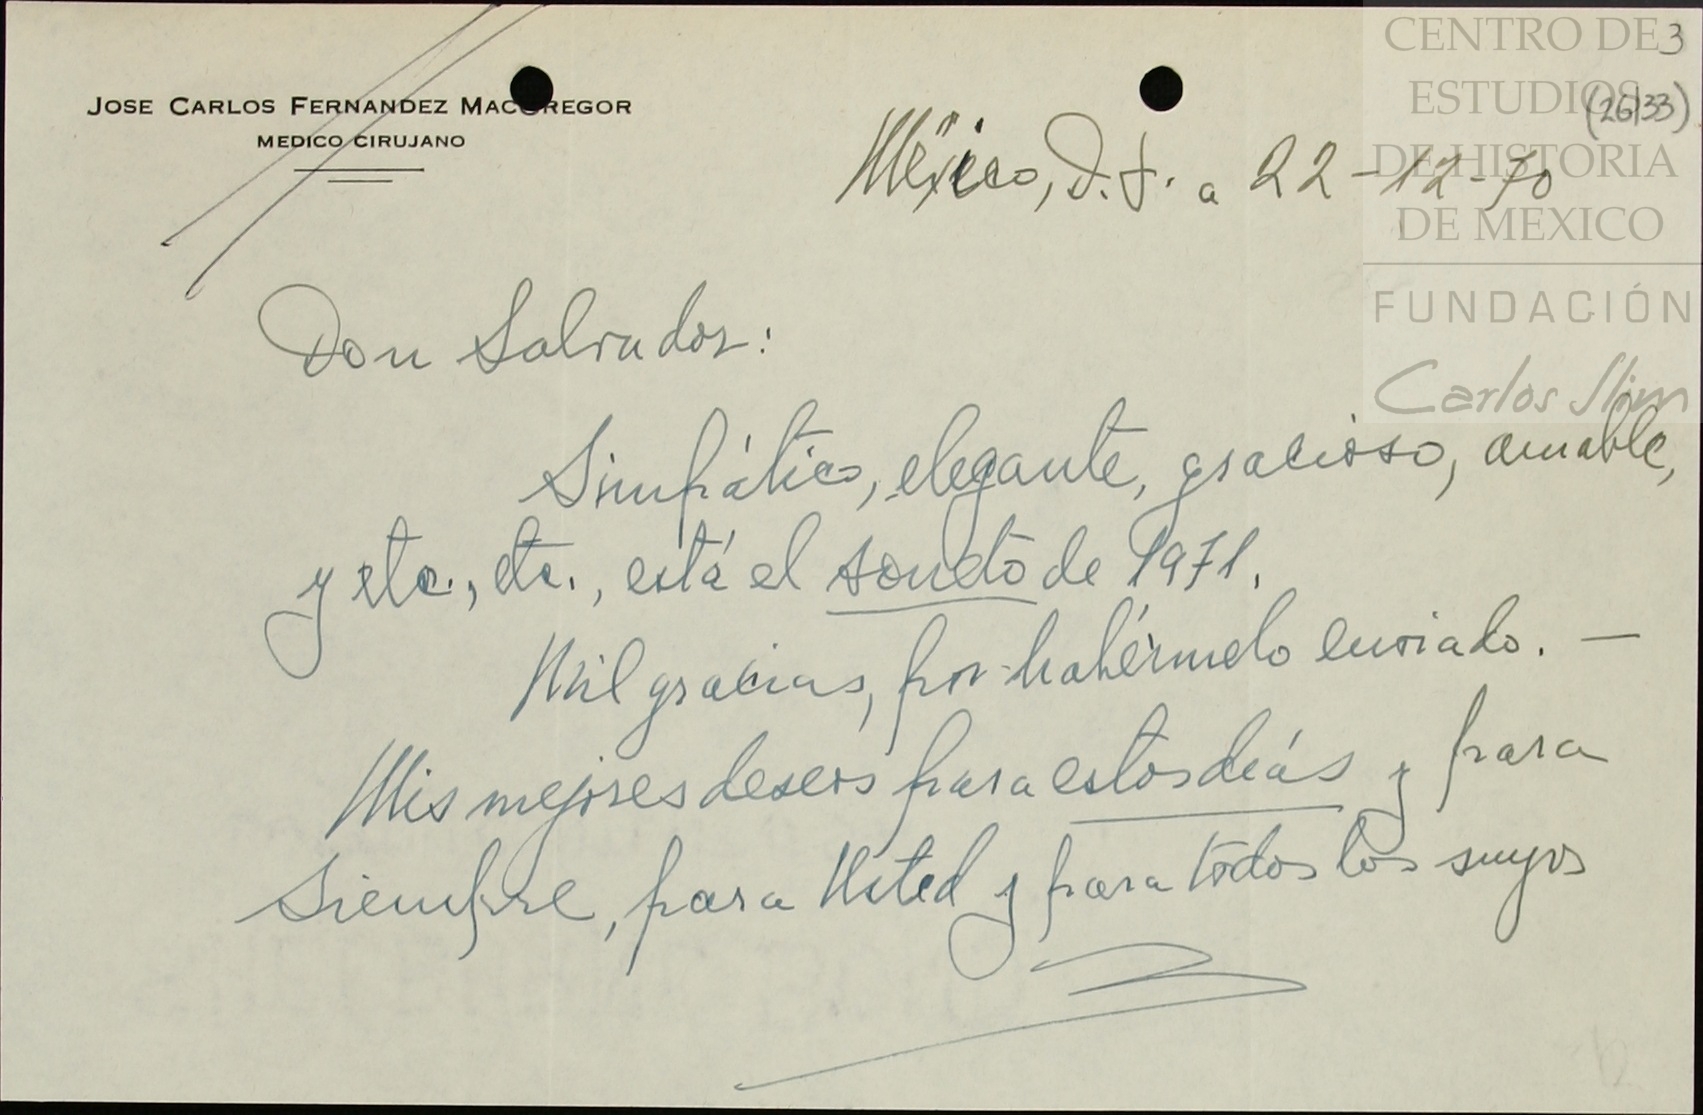 CENTRO DE
ESTUDIOS
DE HISTORIA
DE MEXICO
FUNDACIÓN
Carlos Slim
3
(26133)
JOSE CARLOS FERNANDEZ MACGREGOR
MEDICO CIRUJANO
México, D.F. a 22-12-70
Don Salvador:
Simpático, elegante, gracioso, amable,
y etc., etc., está el soneto de 1971.
Mil gracias, por habérmelo enviado. —
Mis mejores deseos para estos días y para
siempre, para Usted y para todos los suyos